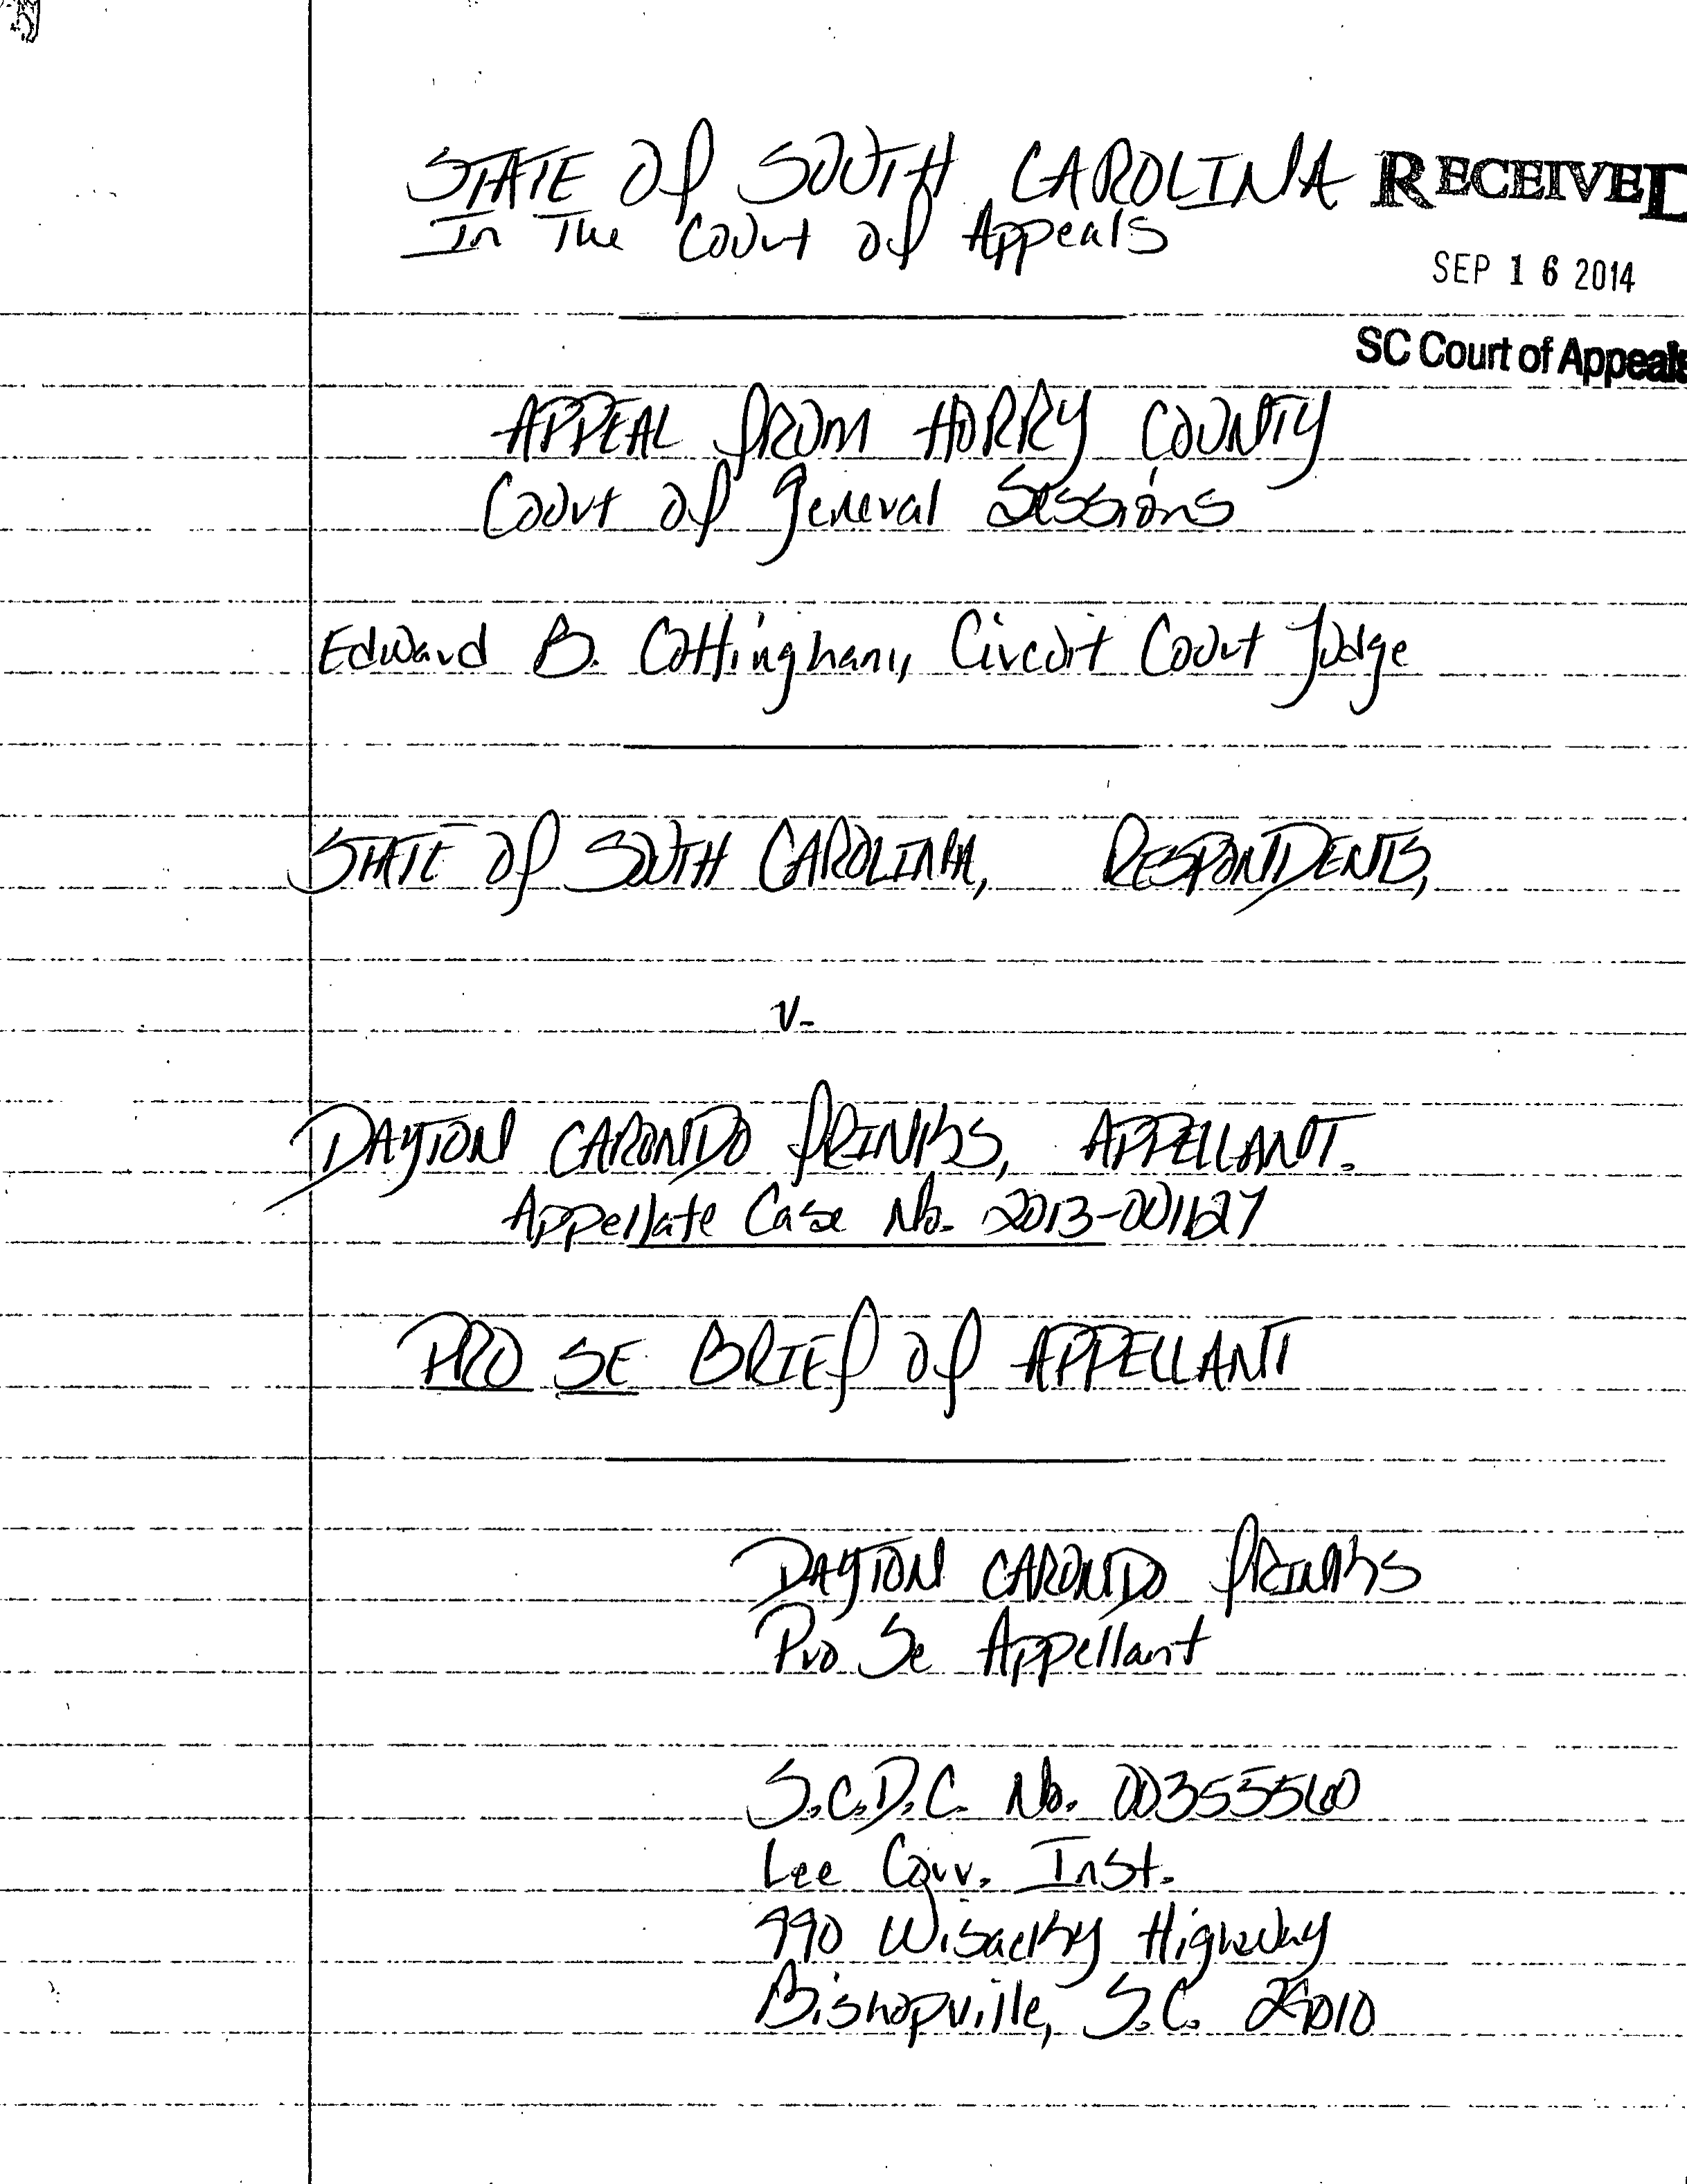 STATE Of SOUTH CAROLINA
RECEIVED
In The Court of Appeals
SEP 16 2014
SC Court of Appeals
APPEAL FROM HORRY COUNTY
Court of General Sessions
Edward B. Cottingham, Circuit Court Judge
STATE Of SOUTH CAROLINA, RESPONDENTS,
v.
DAYTON CARONDO PRINKS, APPELLANT.
Appellate Case No. 2013-001627
PRO SE BRIEF Of APPELLANT
DAYTON CARONDO PRINKS
Pro Se Appellant
S.C.D.C. No. 00355560
Lee Corr. Inst.
990 Wisacky Highway
Bishopville, S.C. 29010